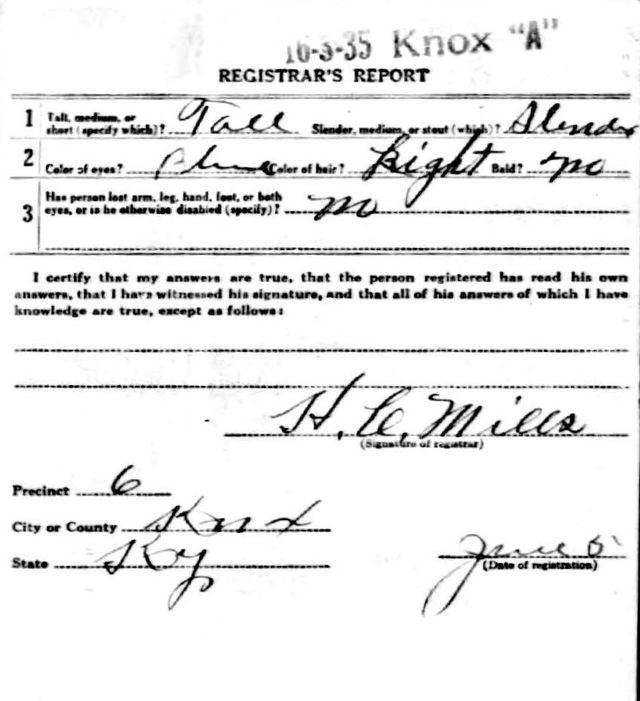 16-3-35 Knox "A"
REGISTRAR'S REPORT
1 Tall, medium, or short (specify which)? Tall Slender, medium, or stout (which)? Slender
2 Color of eyes? Blue Color of hair? Light Bald? no
3 Has person lost arm, leg, hand, foot, or both eyes, or is he otherwise disabled (specify)? no
I certify that my answers are true, that the person registered has read his own
answers, that I have witnessed his signature, and that all of his answers of which I have
knowledge are true, except as follows:
H. C. Mills
(Signature of registrar)
Precinct 6
City or County Knox
State Ky
June 5
(Date of registration)